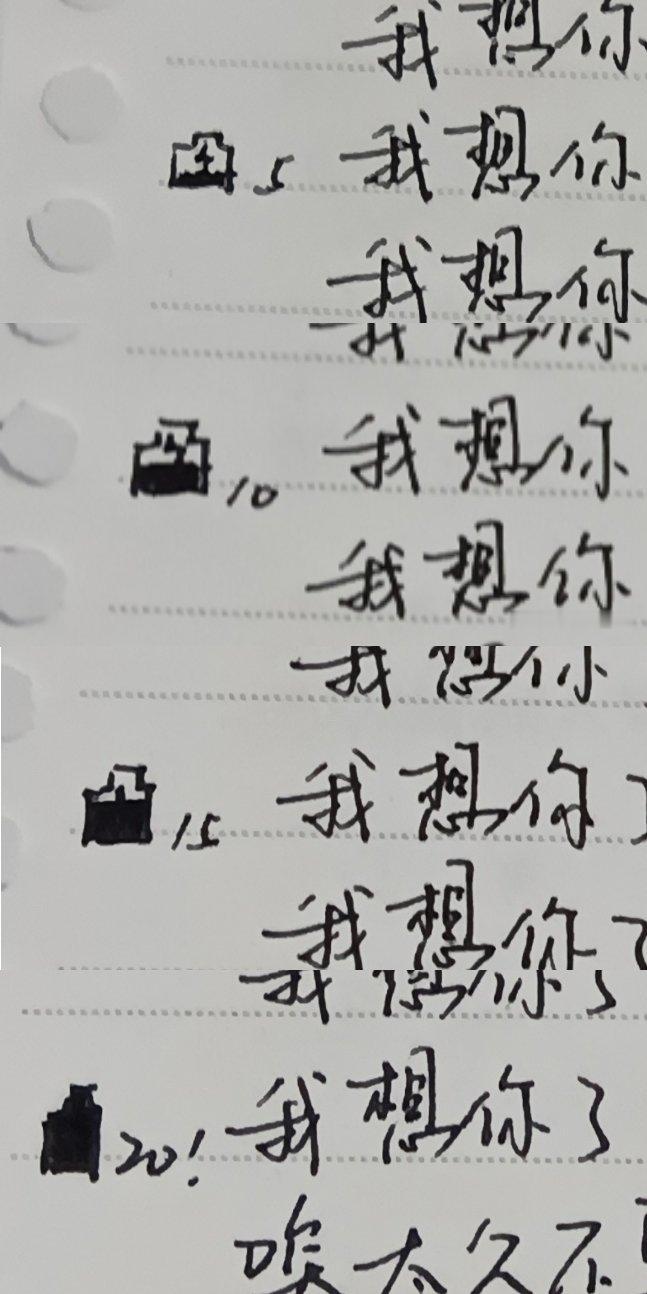 我想你
5 我想你
我想你
我想你
10 我想你
我想你
我想你
15 我想你了
我想你了
我想你了
20! 我想你了
唉太久不